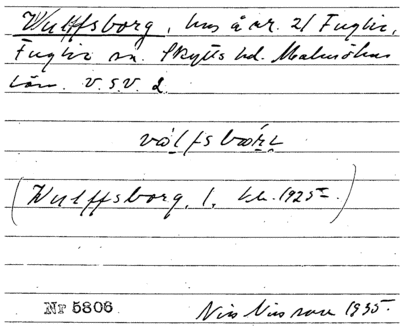 Wulffsborg, hus å nr. 21 Fuglie,
Fuglie sn. Skytts hd. Malmöhus
län. V.S.V. d.
(Wulffsborg, l. kk. 1925.)
Nr 5806
Nils Nilsson 1935.